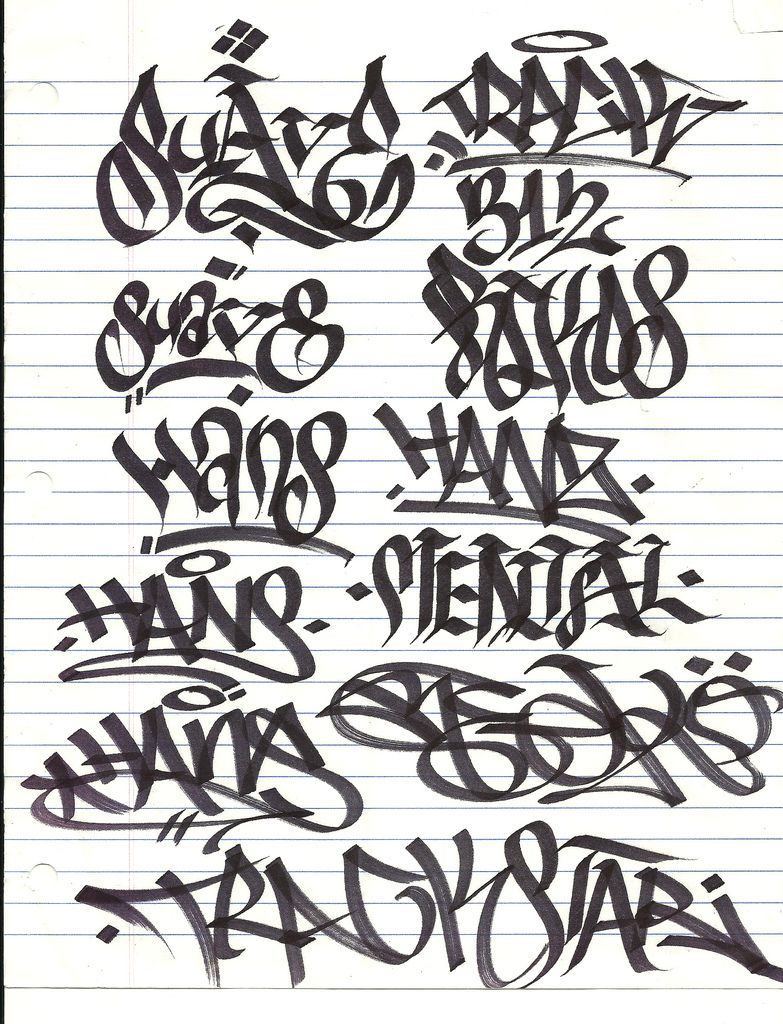 Suave
TRACK
312
Suave
Hans
HANZ
HANS
MENTAL
HANS
TRACKSTAR